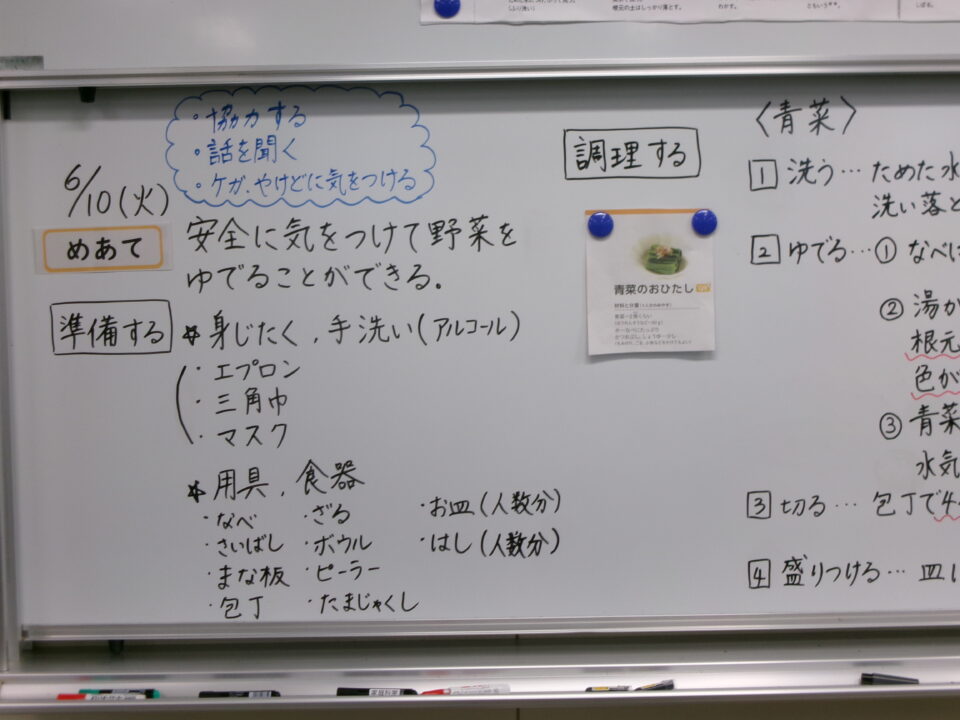 ・協力する
・話を聞く
・ケガ、やけどに気をつける
6/10(火)
めあて
安全に気をつけて野菜を
ゆでることができる。
準備する
＊身じたく、手洗い(アルコール)
・エプロン
・三角巾
・マスク
＊用具、食器
・なべ
・さいばし
・まな板
・包丁
・ざる
・ボウル
・ピーラー
・たまじゃくし
・お皿(人数分)
・はし(人数分)
調理する
青菜のおひたし
〈青菜〉
1 洗う…ためた水
洗い落と
2 ゆでる…① なべに
② 湯が
根元
色が
③ 青菜
水気
3 切る… 包丁で4
4 盛りつける… 皿に